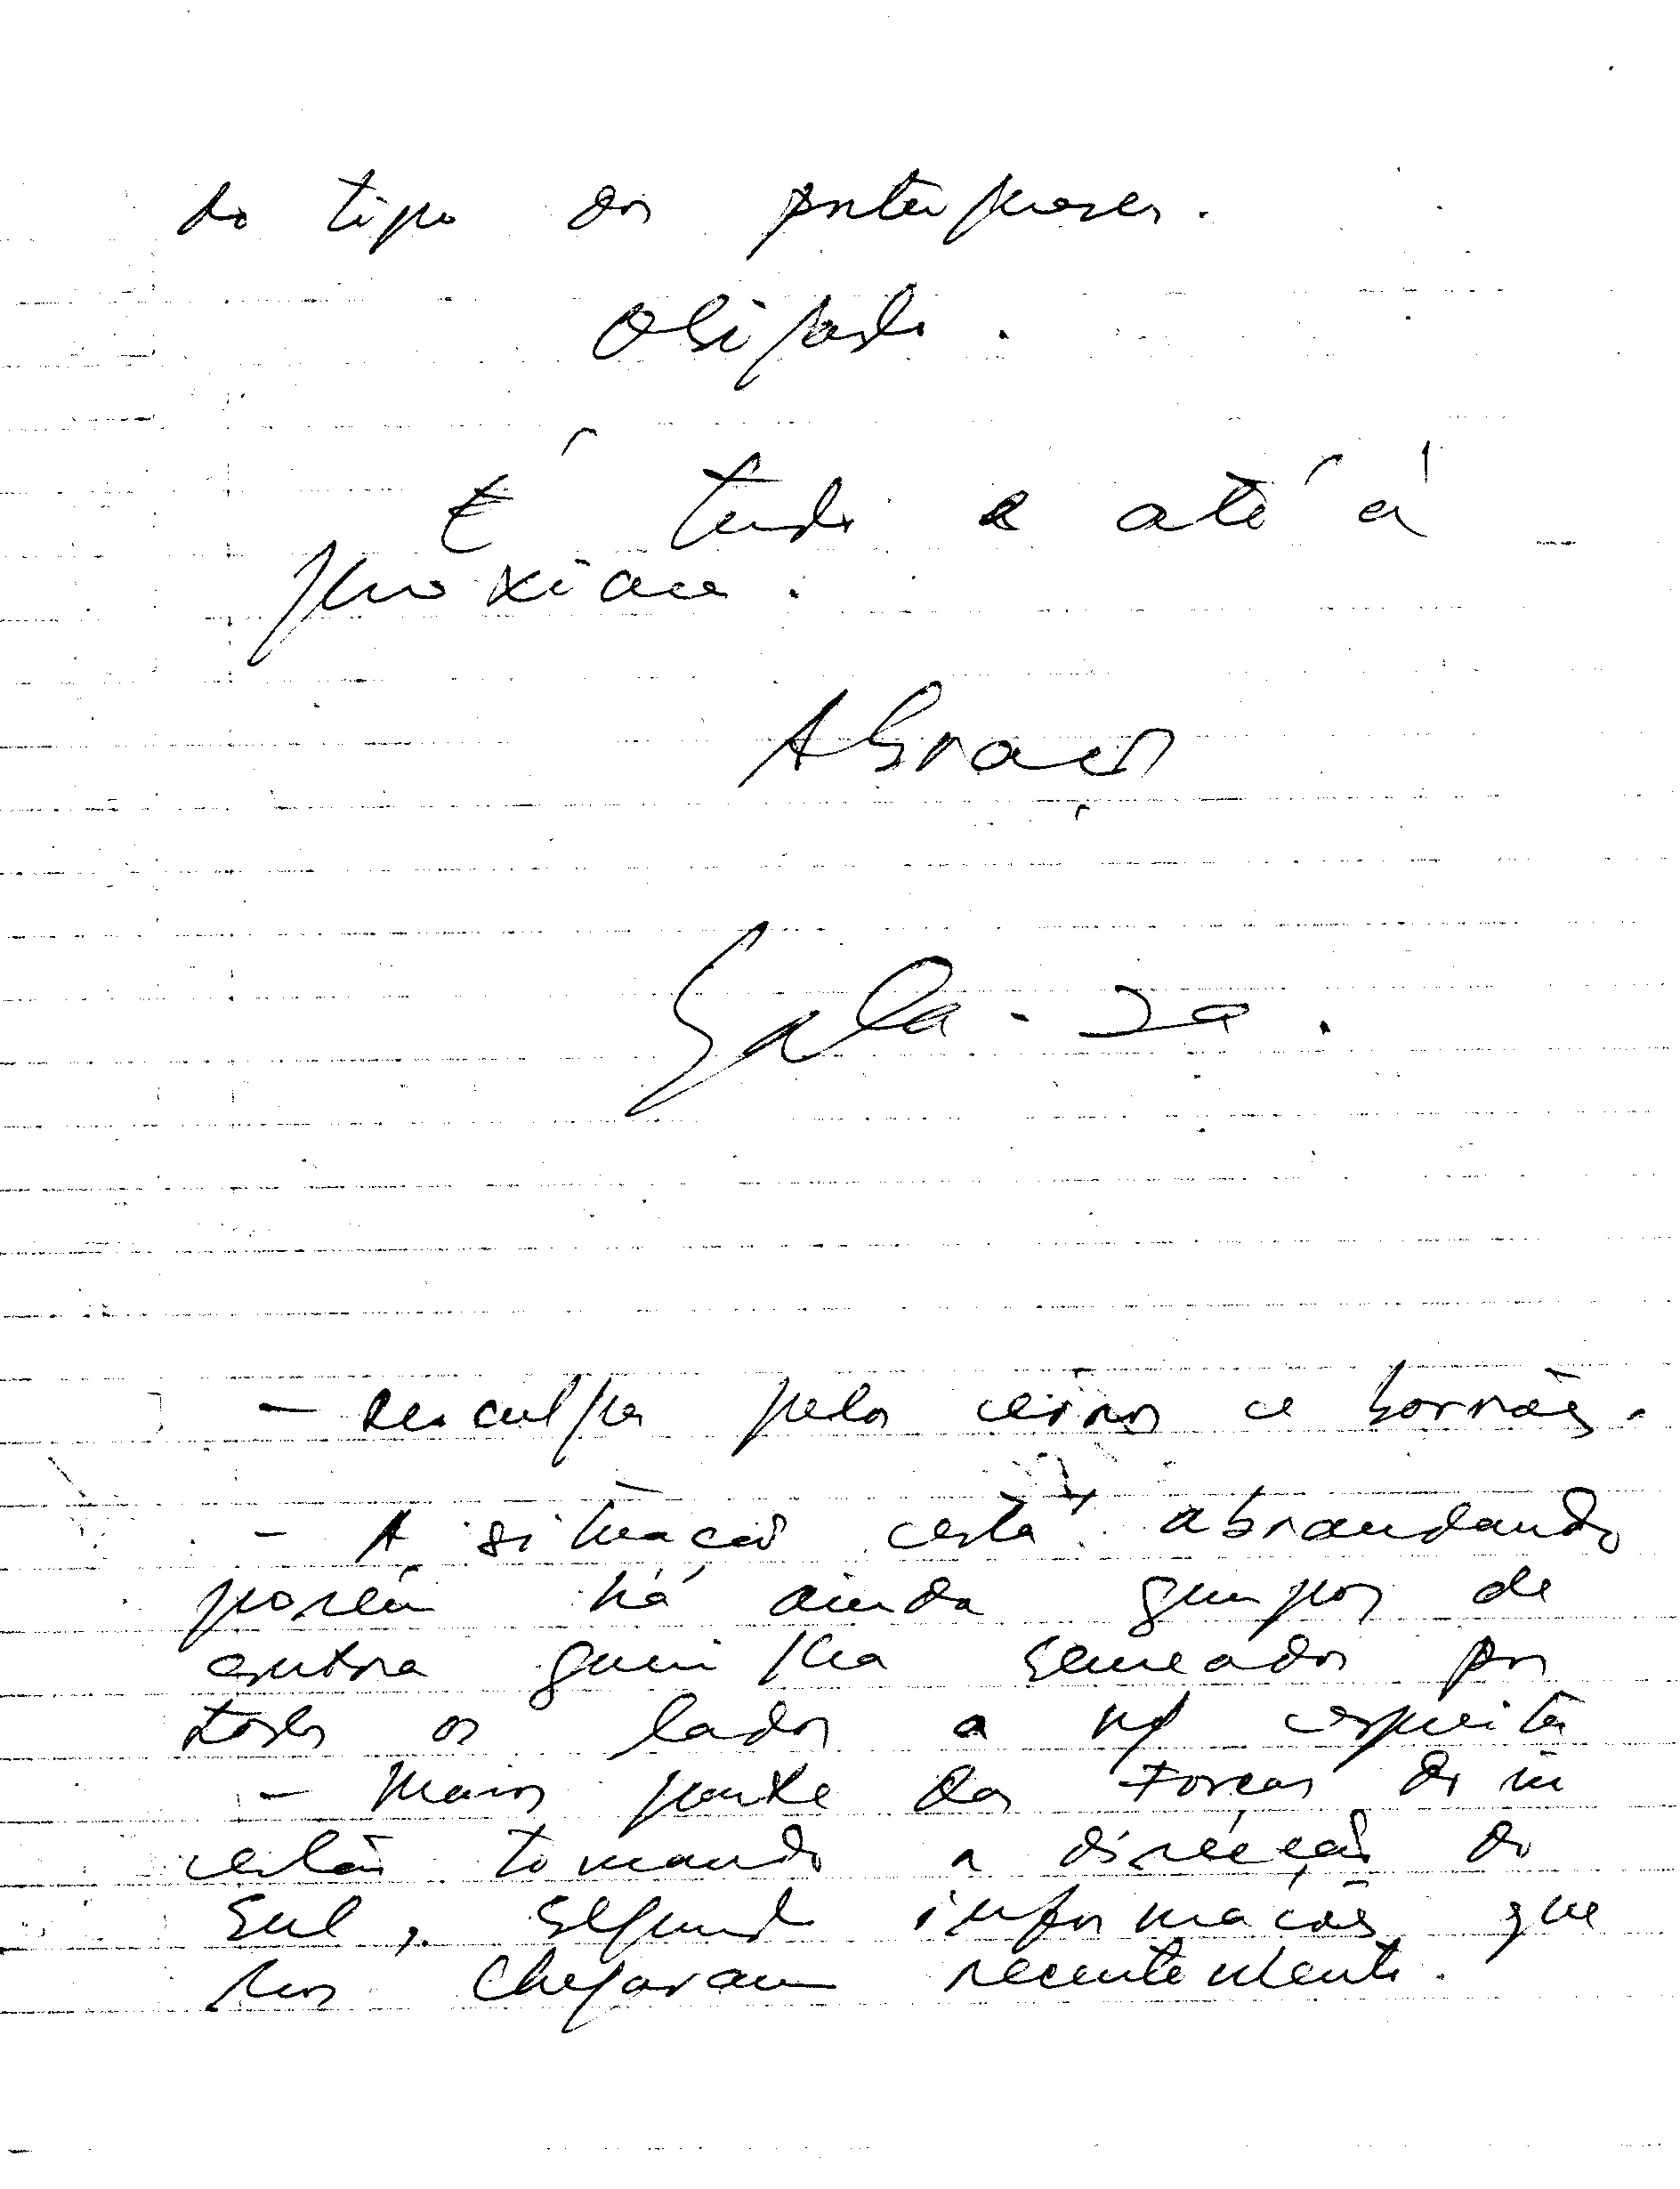 do tipo dos portugueses.
Obigado.
É tudo e até á
proxima.
Abraços
Sala-za.
- Desculpa pelos erros e borrões.
- A situação está abrandando
porém há ainda grupos de
contra guerrilha semeados por
todos os lados a n/ espreita
- Maior parte das Forças do in
estão tomando a direcção do
Sul, segundo informações que
nos chegaram recentemente.